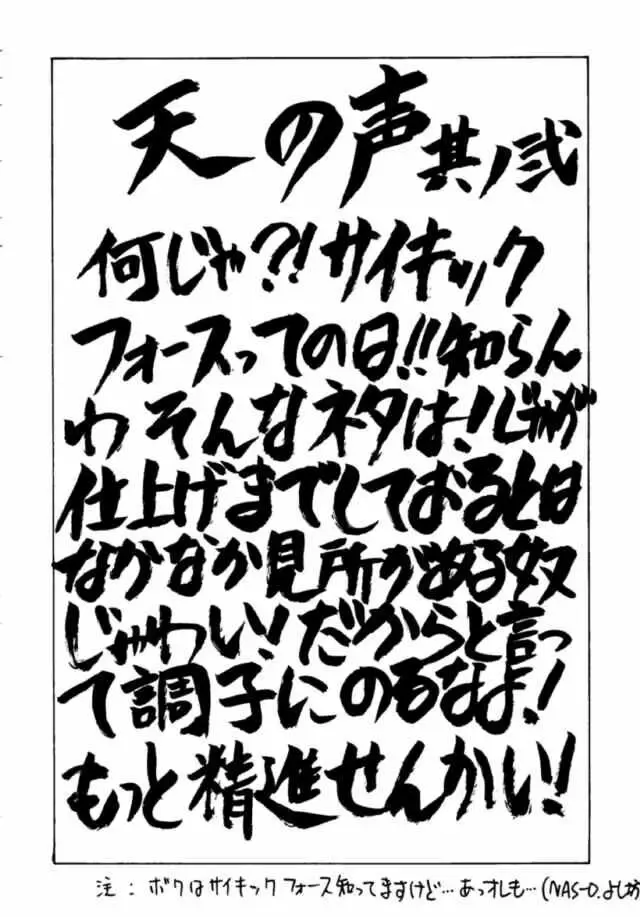 天の声其ノ弐
何じゃ?!サイキック
フォースっての日!!知らん
わそんなネタは!じゃが
仕上げまでしておるとは
なかなか見所がある奴
じゃわい!だからと言っ
て調子にのるなよ!
もっと精進せんかい!
注:ボクはサイキックフォース知ってますけど…あっオレも…(NAS-O.よしお